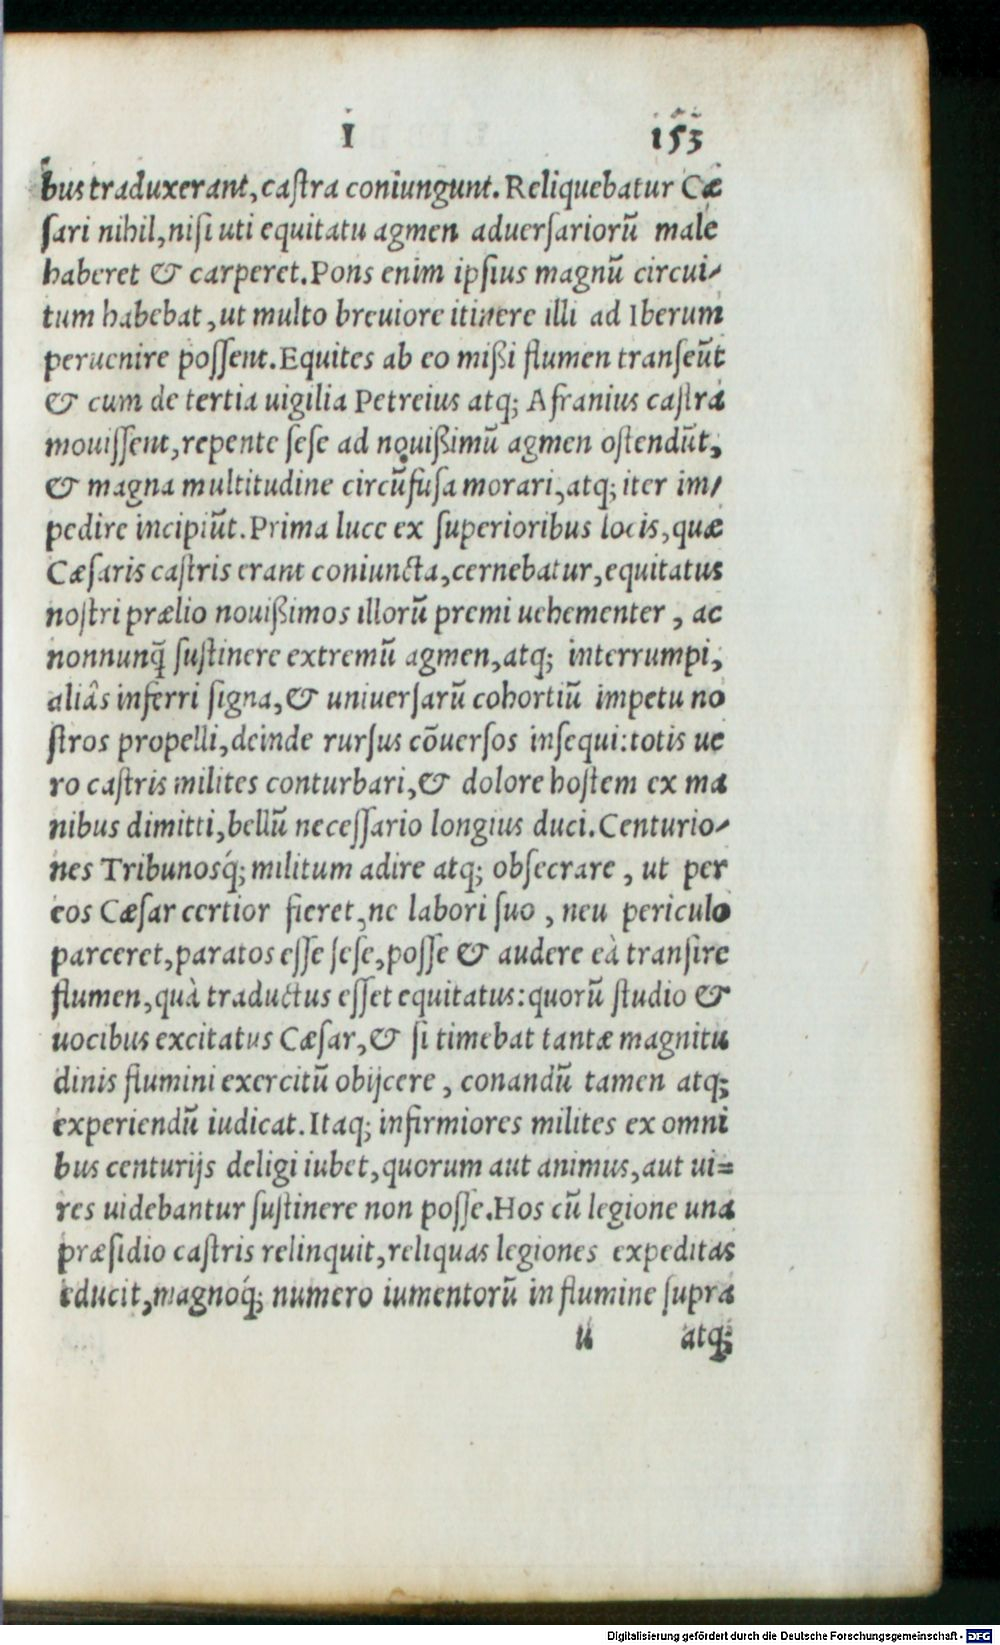 I 153
bus traduxerant, castra coniungunt. Reliquebatur Cæ
sari nihil, nisi uti equitatu agmen aduersariorũ male
haberet & carperet. Pons enim ipsius magnũ circui-
tum habebat, ut multo breuiore itinere illi ad Iberum
peruenire possent. Equites ab eo mißi flumen transeũt
& cum de tertia uigilia Petreius atq; Afranius castra
mouissent, repente sese ad nouißimũ agmen ostendũt,
& magna multitudine circũfusa morari, atq; iter im-
pedire incipiũt. Prima luce ex superioribus locis, quæ
Cæsaris castris erant coniuncta, cernebatur, equitatus
nostri prælio nouißimos illorũ premi uehementer, ac
nonnunq̃ sustinere extremũ agmen, atq; interrumpi,
aliâs inferri signa, & uniuersarũ cohortiũ impetu no
stros propelli, deinde rursus cõuersos insequi: totis ue
ro castris milites conturbari, & dolore hostem ex ma
nibus dimitti, bellũ necessario longius duci. Centurio-
nes Tribunosq́; militum adire atq; obsecrare, ut per
eos Cæsar certior fieret, ne labori suo, neu periculo
parceret, paratos esse sese, posse & audere eà transire
flumen, quà traductus esset equitatus: quorũ studio &
uocibus excitatus Cæsar, & si timebat tantæ magnitu
dinis flumini exercitũ obijcere, conandũ tamen atq;
experiendũ iudicat. Itaq; infirmiores milites ex omni
bus centurijs deligi iubet, quorum aut animus, aut ui=
res uidebantur sustinere non posse. Hos cũ legione una
præsidio castris relinquit, reliquas legiones expeditas
educit, magnoq́; numero iumentorũ in flumine supra
u atq;
Digitalisierung gefördert durch die Deutsche Forschungsgemeinschaft - DFG